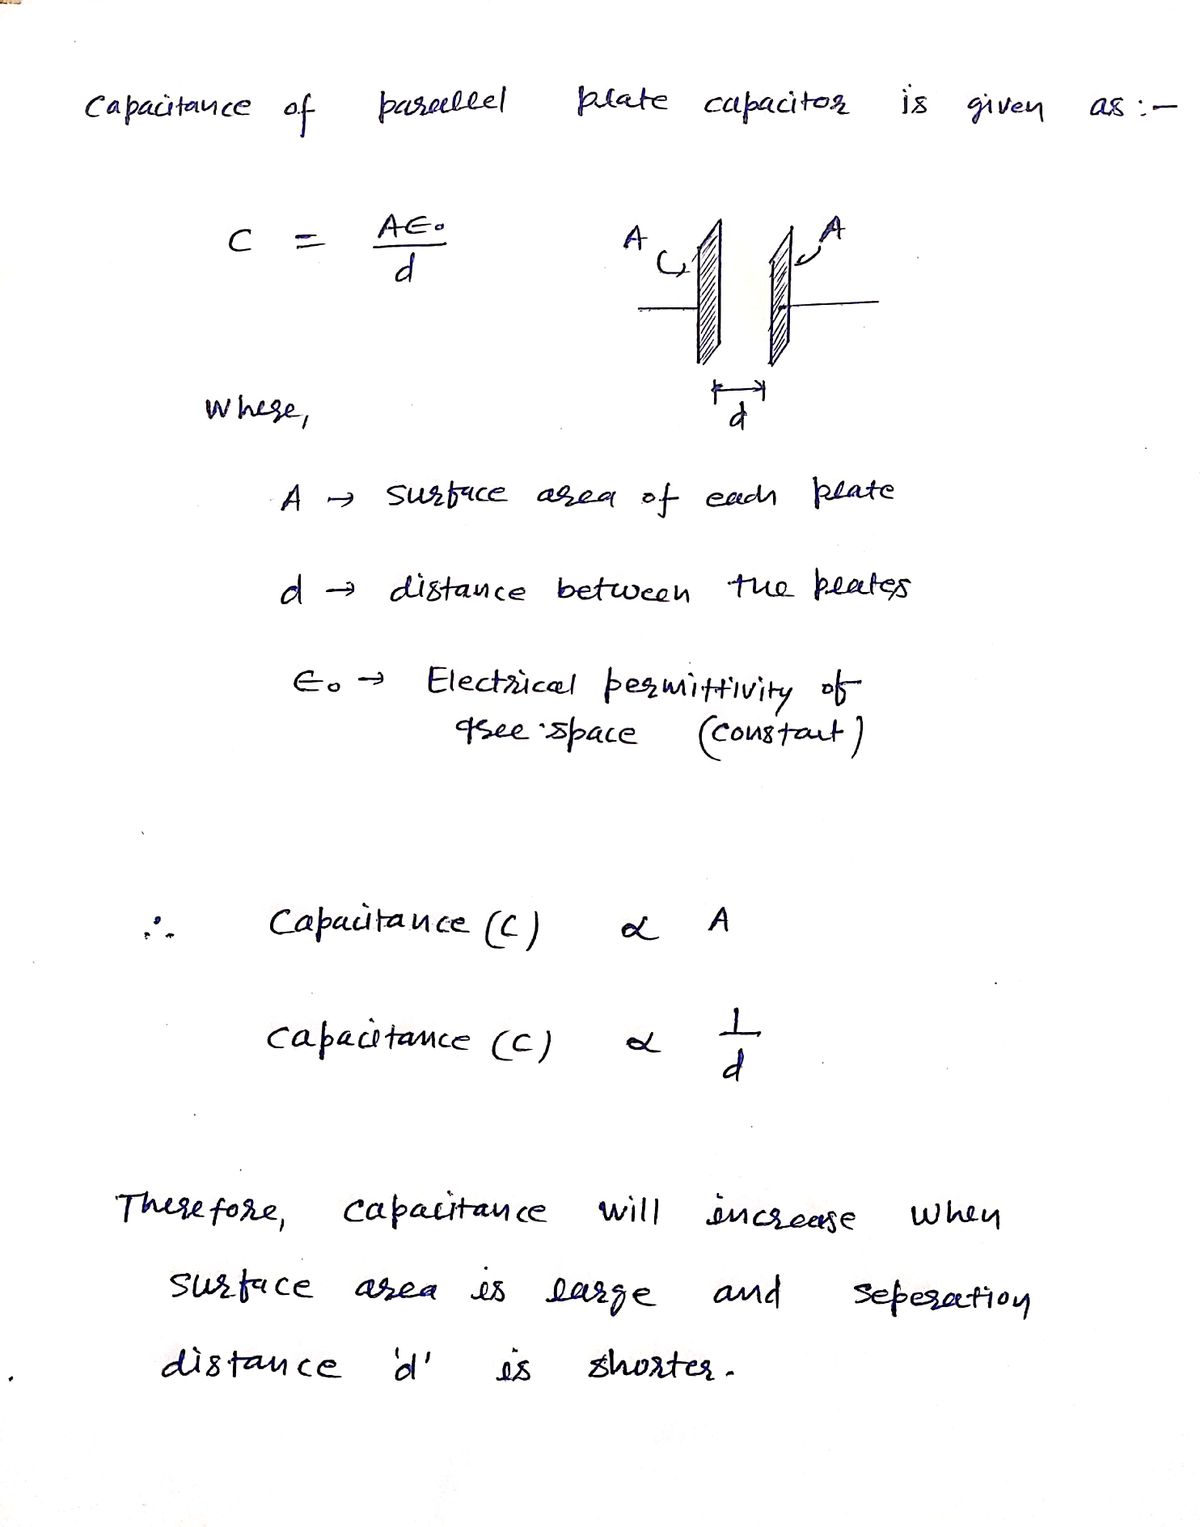 Capacitance of parallel plate capacitor is given as :-
C = A∈₀/d
A A
d
Where,
A → surface area of each plate
d → distance between the plates
∈₀ → Electrical permittivity of
free space (constant)
∴ Capacitance (C) ∝ A
Capacitance (C) ∝ 1/d
Therefore, capacitance will increase when
surface area is large and seperation
distance 'd' is shorter.